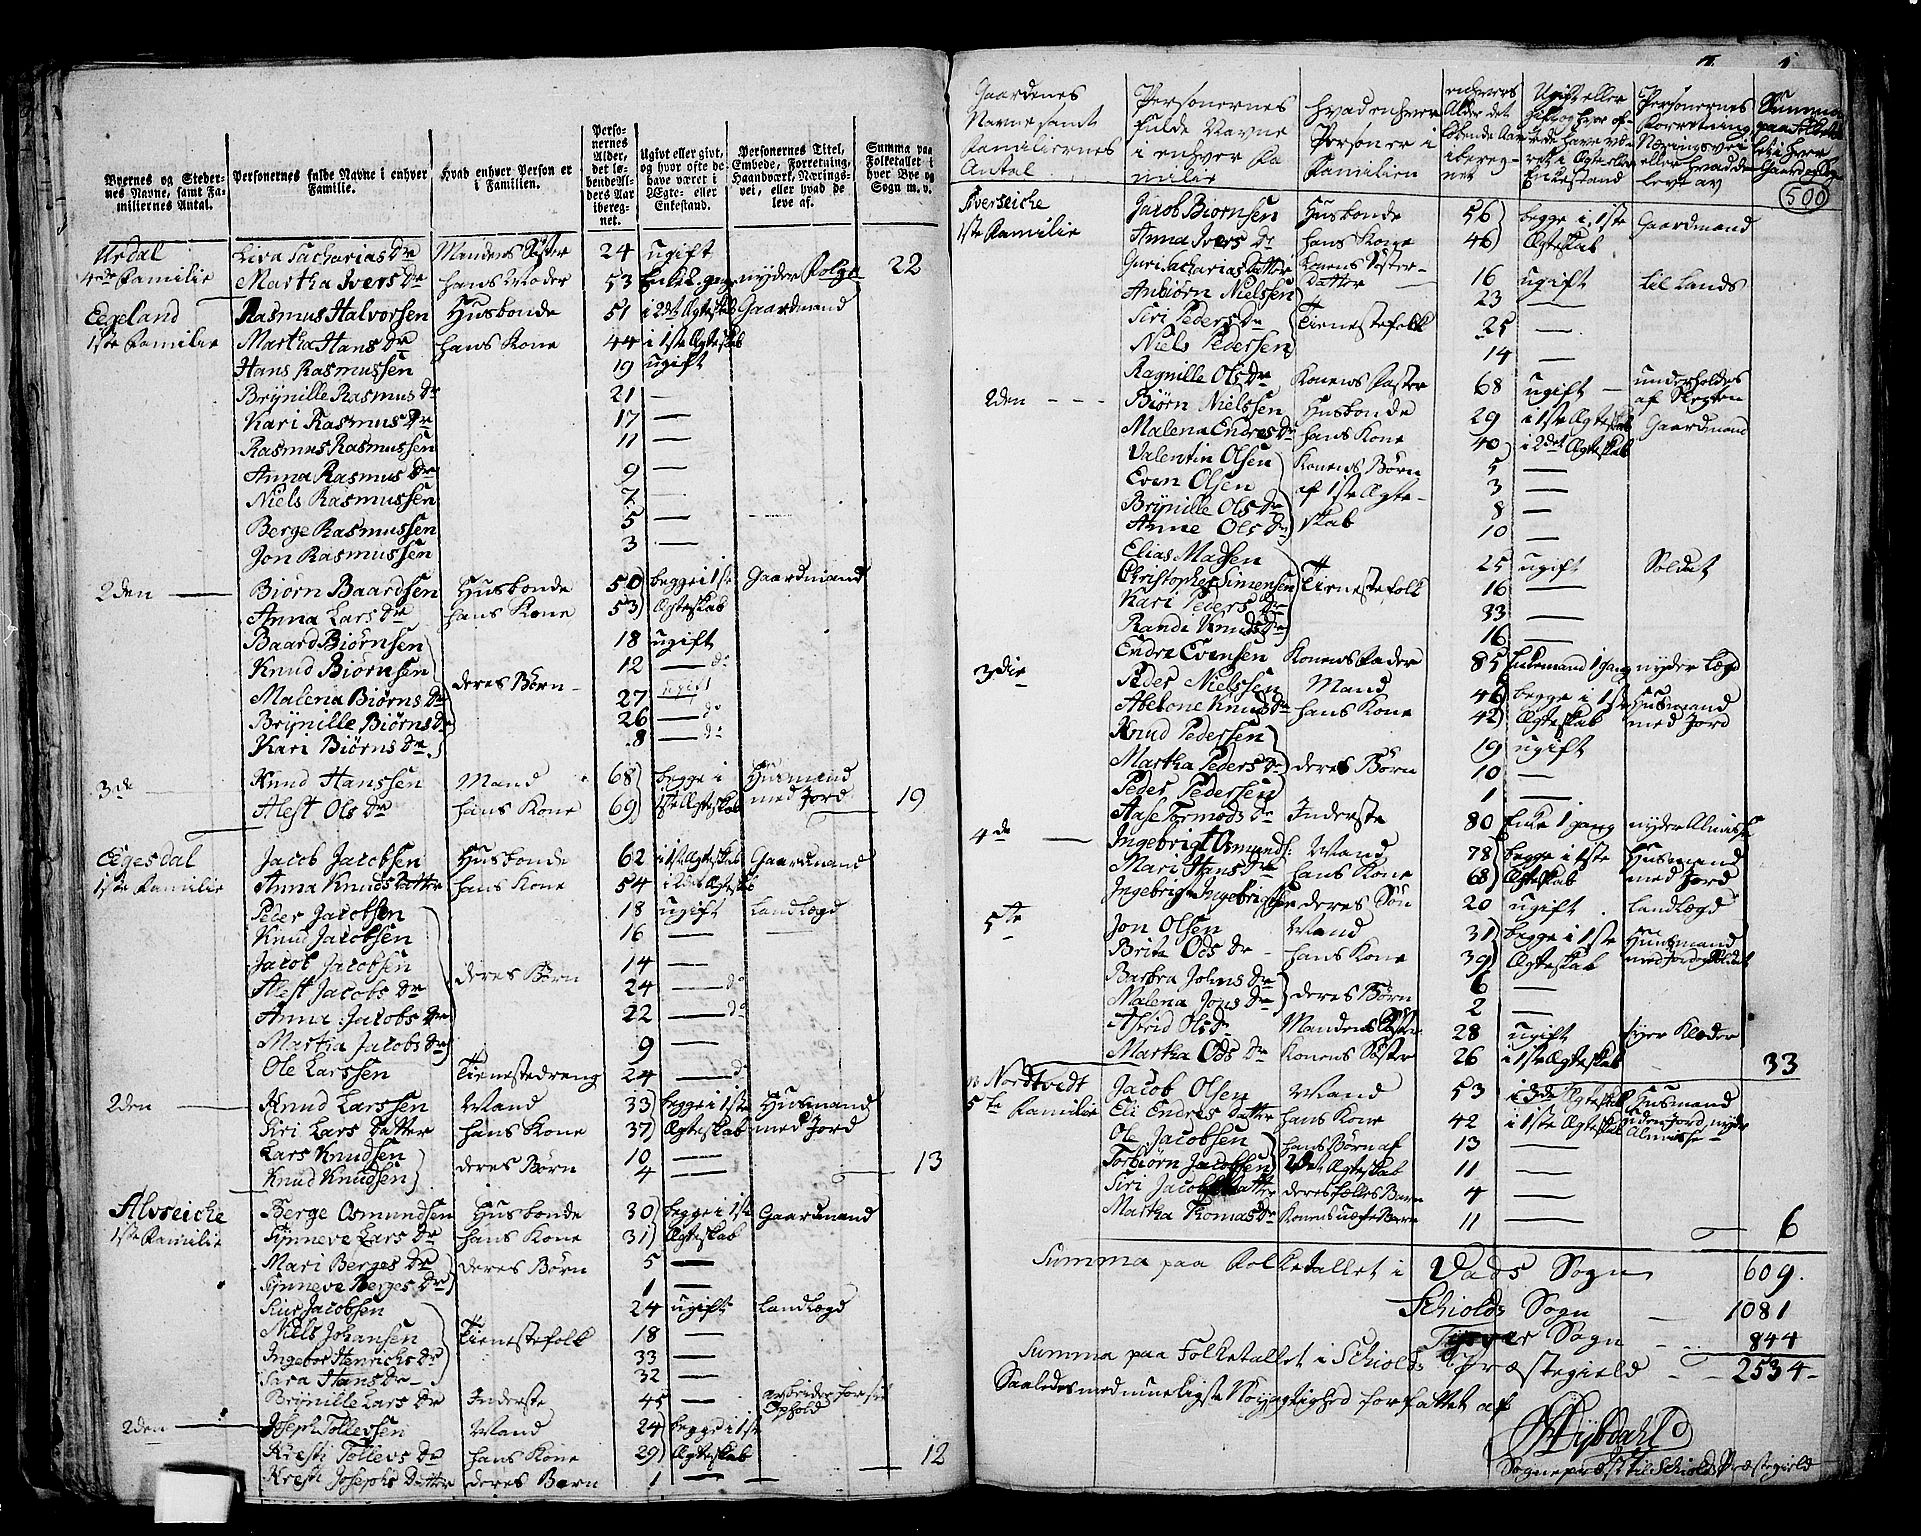 Byernes og Stedernes Navne, samt Familiernes Antal. | Personernes fulde Navne i enhver Familie. | Hvad enhver Person er i Familien. | Personernes Alder, det løbende Alders Aar iberegnet. | Ugivt eller givt, og hvor ofte de have været i Ægte- eller Enkestand. | Personernes Titel, Embede, Forretning, Haandværk, Næringsvei, eller hvad de leve af. | Summa paa Folketallet i hver Bye og Sogn m. v.
Urdal | Liva Sacharias Dr | Mandens Søster | 24 | ugift
4de Familie | Martha Ivers Dr | hans Moder | 53 | Enke 1. gang | nyder Folga | 22
Egeland | Rasmus Halvorsen | Husbonde | 51 | i 2det Ægteskab | Gaardmand
1ste Familie | Martha Hans Dr | hans Kone | 44 | i 1ste Ægteskab
Hans Rasmussen | 19 | ugift
Brynille Rasmus Dr | 21 | —
Kari Rasmus Dr | 17 | —
Rasmus Rasmussen | 11 | —
Anna Rasmus Dr | 9 | —
Niels Rasmussen | 7 | —
Berge Rasmussen | 5 | —
Jon Rasmussen | 3 | —
2den | Biørn Baardsen | Husbonde | 50 | begge i 1ste | Gaardmand
Anna Lars Dr | hans Kone | 53 | Ægteskab
Baard Biørnsen | 18 | ugift
Knud Biørnsen | 12 | — do
Malena Biørns Dr | deres Børn | 27 | ugift
Brynille Biørns Dr | 26 | — do
Kari Biørns Dr | 8 | — do
3de | Knud Hanssen | Mand | 68 | begge i | Husmand
Alest Ols Dr | hans Kone | 69 | 1ste Ægteskab | med Jord | 19
Egesdal | Jacob Jacobsen | Husbonde | 62 | i 1ste Ægteskab | Gaardmand
1ste Familie | Anna Knuds Datter | hans Kone | 54 | i 2det Ægteskab
Peder Jacobsen | 18 | ugift | Landlægd
Knud Jacobsen | 16 | —
Jacob Jacobsen | 14 | —
Alest Jacobs Dr | deres Børn | 24 | — do
Anna Jacobs Dr | 22 | — do
Martha Jacobs Dr | 9 | —
Ole Larssen | Tienestedreng | 24 | — do
2den | Knud Larssen | Mand | 33 | begge i 1ste | Husmand
Siri Lars Datter | hans Kone | 37 | Ægteskab | med Jord
Lars Knudsen | deres Børn | 10 | —
Knud Knudsen | 4 | — | 13
Alvseiche | Berge Osmundsen | Husbonde | 30 | begge i 1ste | Gaardmand
1ste Familie | Synneve Lars Dr | hans Kone | 31 | Ægteskab
Mari Berges Dr | deres Børn | 5 | —
Synneve Berges Dr | 1 | —
Siur Jacobsen | 24 | ugift | Landlægd
Niels Johansen | Tienestefolk | 18 | —
Ingebor Henrichs Dr | 33 | —
Sira Hans Dr | 32 | —
Brynille Lars Dr | Inderste | 45 | — | arbeider for sit Ophold
2den | Joseph Tollevsen | Mand | 24 | begge i 1ste
Kresti Tollevs Dr | hans Kone | 29 | Ægteskab
Kresti Josephs Datter | deres Barn | 1 | — | 12
Gaardenes Navne samt Familiernes Antal | Personernes Fulde Navne i enhver Familie | hvad enhver Person er i Familien | enhvers Alder det løbende Aar iberegnet | Ugift eller gift og hvor ofte de have været i Ægte eller Enkestand | Personernes Forretning Næringsvei eller hvad de leve av | Summa paa Folketallet
500
Sverseiche | Jacob Biørnsen | Husbonde | 56 | begge i 1ste | Gaardmand
1ste Familie | Anna Ivers Dr | hans Kone | 46 | Ægteskab
Guri Sacharias Datter | Konens Søster-
Datter | 16 | ugift | til Lands
Anbiørn Nielsen | 23 | —
Siri Peders Dr | Tienestefolk | 25 | —
Niels Pedersen | 14 | —
Ragnille Ols Dr | Konens Faster | 68 | ugift | underholdes af Slegten
2den | Biørn Nielssen | Husbonde | 29 | i 1ste Ægteskab | Gaardmand
Malena Endres Dr | hans Kone | 40 | i 2det Ægteskab
Valentin Olsen | Konens Børn | 5 | —
Even Olsen | af 1ste Ægte- | 3 | —
Brynille Ols Dr | skab | 8 | —
Anne Ols Dr | 10 | —
Elias Madsen | 25 | ugift | Soldat
Christopher Simensen | Tienestefolk | 16 | —
Kari Peders Dr | 33 | —
Randi Knuds Dr | 16 | —
Endre Evensen | Konens Fader | 85 | Enkemand 1 gang | nyder Lægd
3die | Peder Nielssen | Mand | 46 | begge i 1ste | Husmand
Abelone Knuds Dr | hans Kone | 42 | Ægteskab | med Jord
Knud Pedersen | 19 | ugift
Martha Peders Dr | deres Børn | 10 | —
Peder Pedersen | 1 | —
Aase Tormods Dr | Inderste | 80 | Enke 1 gang | nyder Almisse
4de | Ingebrigt Osmunds: | Mand | 78 | begge i 1ste | Husmand
Mari Hans Dr | hans Kone | 68 | Ægteskab | med Jord
Ingebrigt Ingebrigtsen | deres Søn | 20 | ugift | Landlægd
5te | Jon Olsen | Mand | 31 | begge i 1ste | Huusmand
Brite Ods Dr | hans Kone | 39 | Ægteskab | med Jord og Soldat
Barbra Johns Dr | deres Børn | 6 | —
Malena Jons Dr | 2 | —
Astrid Ols Dr | Mandens Søster | 28 | ugift | syer Klæder
Martha Ods Dr | Konens Søster | 26 | i 1ste Ægteskab | 33
Nordtvedt | Jacob Olsen | Mand | 53 | i 3de Ægteskab | Husmand
5te Familie | Eli Endres Datter | hans Kone | 42 | i 1ste Ægteskab | uden Jord, nyder Almisse
Ole Jacobsen | hans Børn af | 13 | —
Torbiørn Jacobsen | 2det Ægteskab | 11 | —
Siri Jacobs Datter | deres fælles Barn | 4 | —
Martha Thomas Dr | Konens uægte Barn | 11 | — | 6
Summa paa Folketallet i Vads Sogn | 609.
Schiolds Sogn | 1081
Tysver Sogn | 844
Summa paa Folketallet i Schiolds Præstegield | 2534
Saaledes med mueligste Nøyagtighed forfattet af
Dybdahl
Sognepræst til Schiolds Præstegield